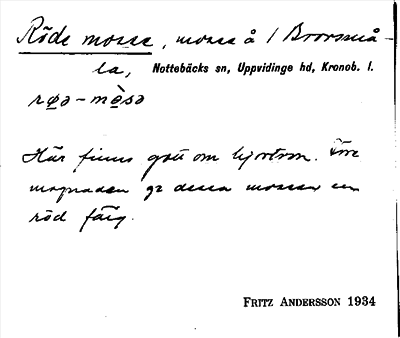 Röde mosse, mosse å / Brorsmå-
la, Nottebäcks sn, Uppvidinge hd, Kronob. l.
røə - mòsə
Här finns gott om hjortron. Före
mognaden ge dessa mossen en
röd färg.
FRITZ ANDERSSON 1934